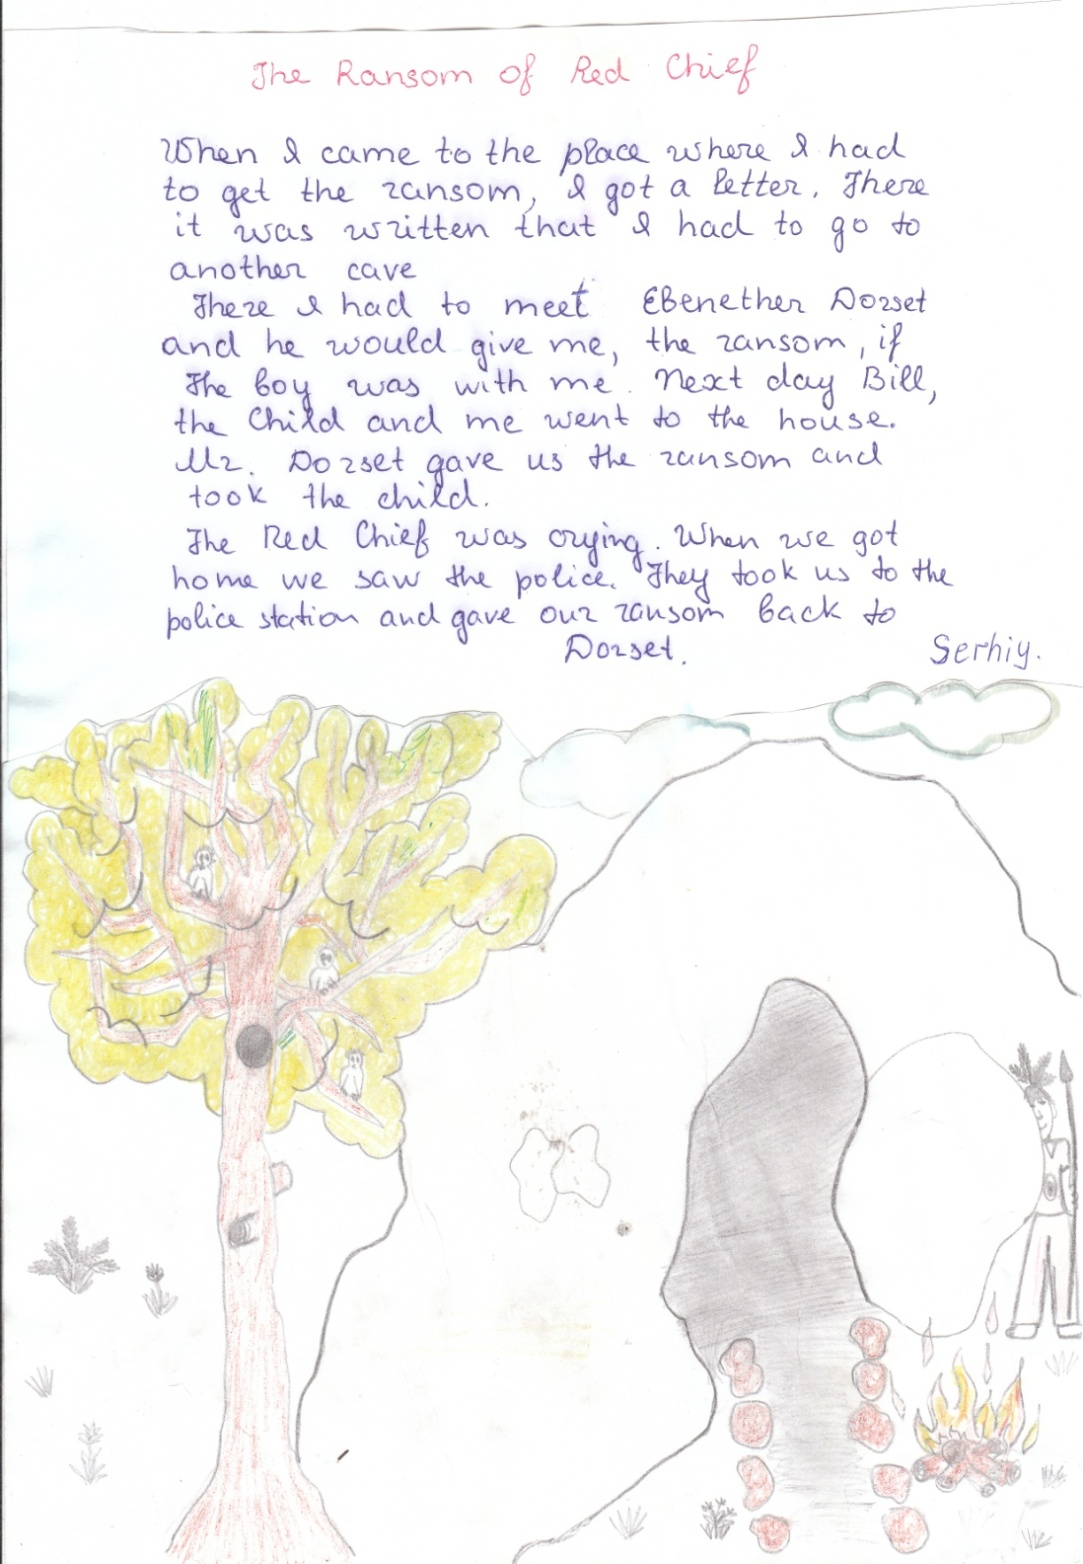 The Ransom of Red Chief
When I came to the place where I had
to get the ransom, I got a letter. There
it was written that I had to go to
another cave
There I had to meet Ebenether Dorset
and he would give me, the ransom, if
the boy was with me. Next day Bill,
the Child and me went to the house.
Mr. Dorset gave us the ransom and
took the child.
The Red Chief was crying. When we got
home we saw the police. They took us to the
police station and gave our ransom back to
Dorset.
Serhiy.